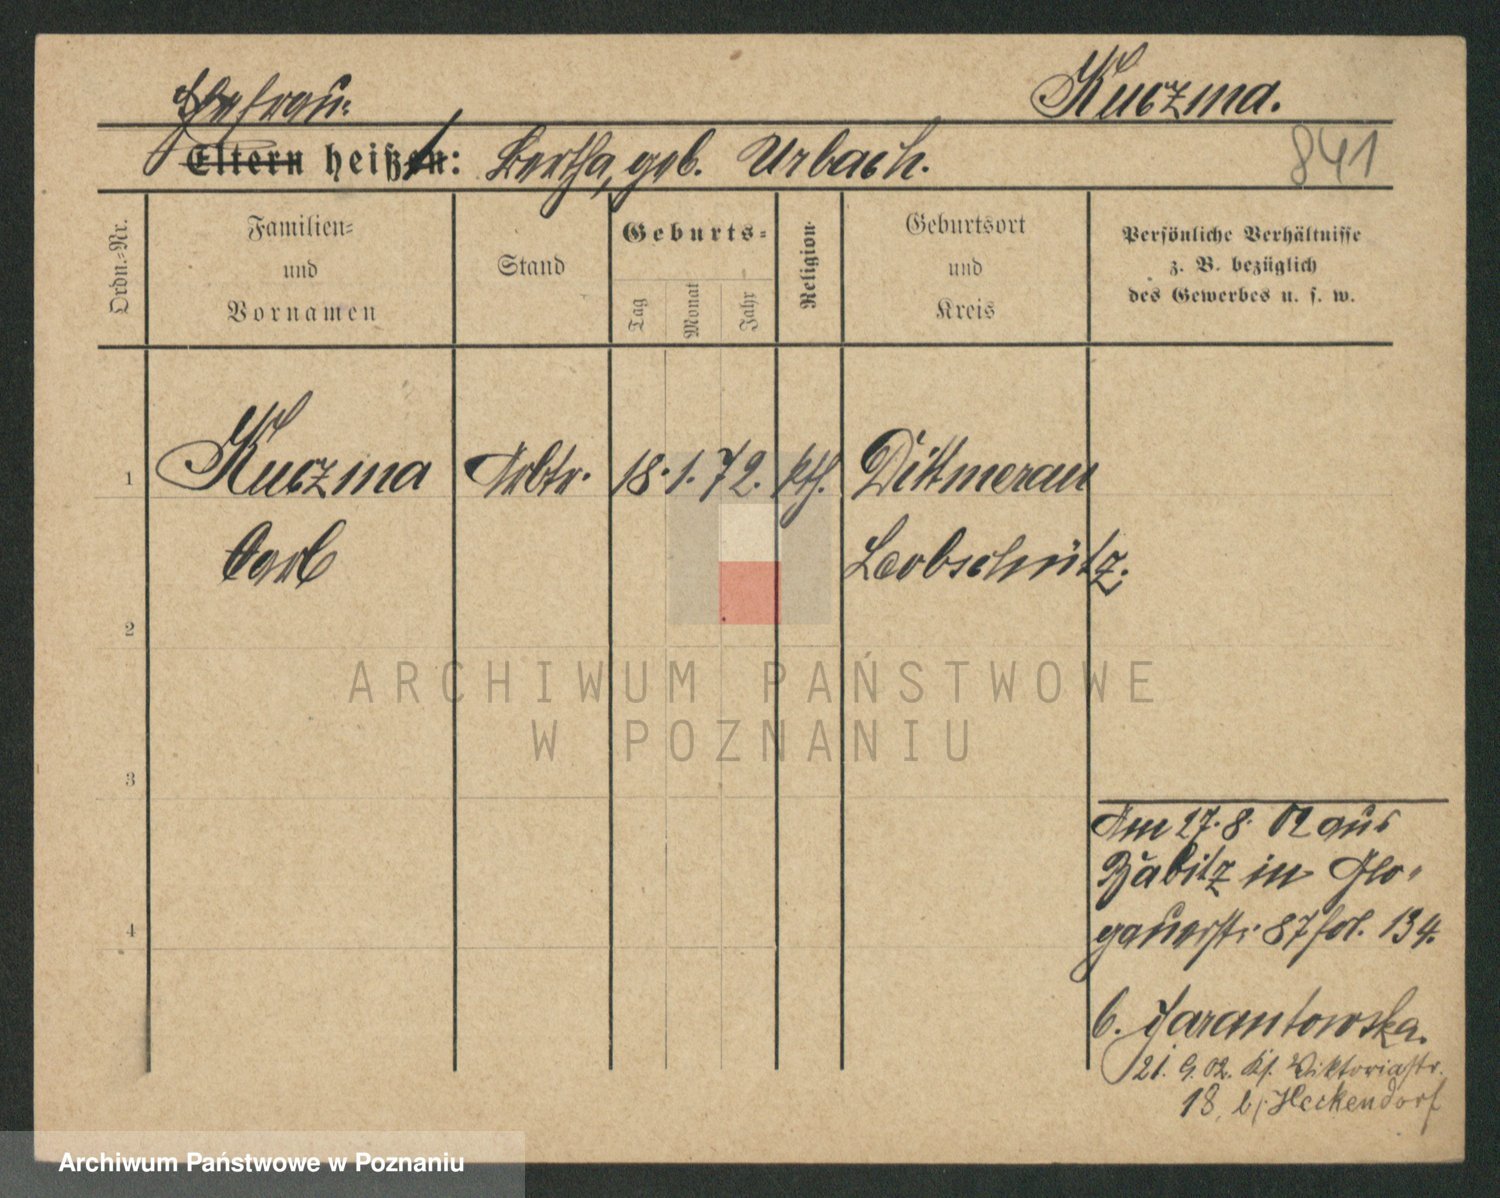 Kuczma.
Ehefrau:
Eltern heißen: Bertha, geb. Urbach.
841
Ordn.-Nr.
Familien-
und
Vornamen
Stand
Geburts-
Tag
Monat
Jahr
Religion
Geburtsort
und
Kreis
Persönliche Verhältnisse
z. B. bezüglich
des Gewerbes u. s. w.
1
Kuczma
Arbtr.
18. 1. 72.
kth.
Dittmerau
Carl
Leobschütz.
2
ARCHIWUM PAŃSTWOWE
W POZNANIU
3
Am 27. 8. 02 aus
Zabitz in Glo-
4
gauerstr. 87 fol. 134.
b. Tarantowska.
21. 9. 02. Viktoriastr.
18, b/ Heckendorf
Archiwum Państwowe w Poznaniu